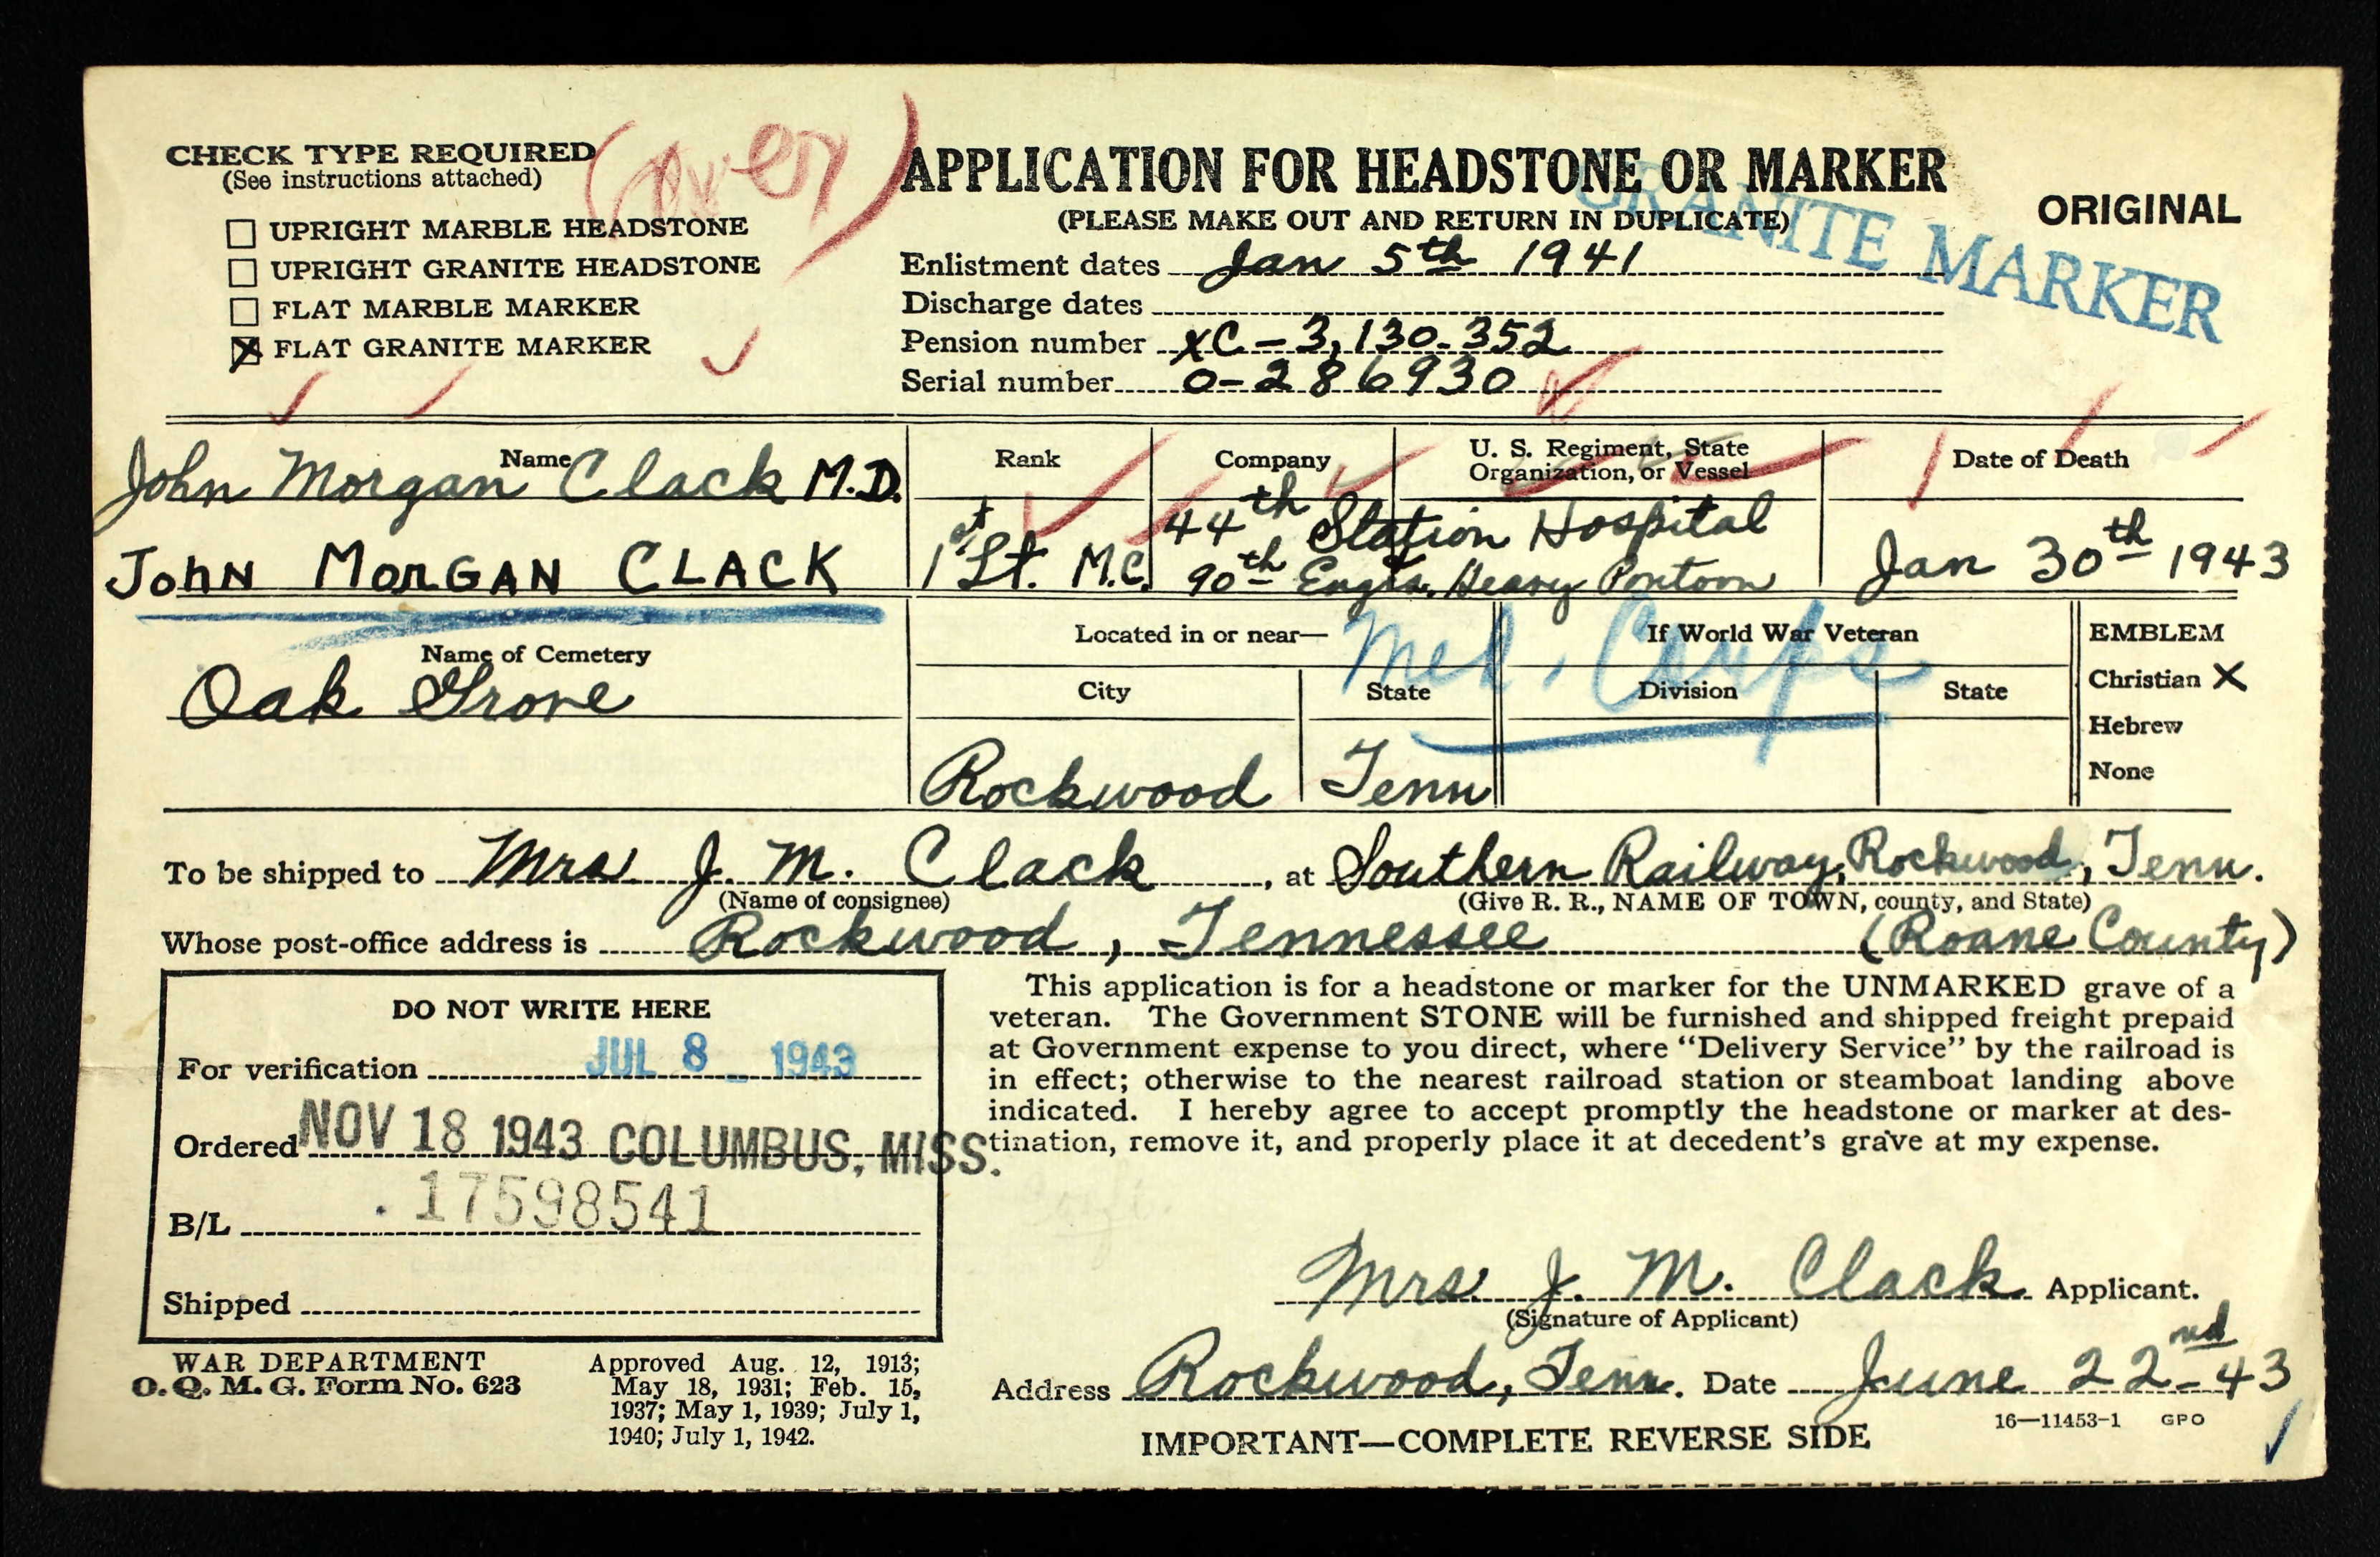 CHECK TYPE REQUIRED
(See instructions attached)
UPRIGHT MARBLE HEADSTONE
UPRIGHT GRANITE HEADSTONE
FLAT MARBLE MARKER
FLAT GRANITE MARKER
APPLICATION FOR HEADSTONE OR MARKER
(PLEASE MAKE OUT AND RETURN IN DUPLICATE)
ORIGINAL
GRANITE MARKER
Enlistment dates Jan 5th 1941
Discharge dates
Pension number XC-3,130-352
Serial number O-286930
Name
John Morgan Clack M.D.
JOHN MORGAN CLACK
Rank
1st Lt. M.C.
Company
U. S. Regiment, State
Organization, or Vessel
44th Station Hospital
90th Engrs. Heavy Pontoon
Date of Death
Jan 30th 1943
Name of Cemetery
Oak Grove
Located in or near—
City
State
Rockwood Tenn
Med. Corps
If World War Veteran
Division
State
EMBLEM
Christian X
Hebrew
None
To be shipped to Mrs J. M. Clack, at Southern Railway, Rockwood, Tenn.
(Name of consignee) (Give R. R., NAME OF TOWN, county, and State)
Whose post-office address is Rockwood, Tennessee (Roane County)
DO NOT WRITE HERE
For verification JUL 8 1943
Ordered NOV 18 1943 COLUMBUS, MISS.
B/L 17598541
Shipped
This application is for a headstone or marker for the UNMARKED grave of a
veteran. The Government STONE will be furnished and shipped freight prepaid
at Government expense to you direct, where "Delivery Service" by the railroad is
in effect; otherwise to the nearest railroad station or steamboat landing above
indicated. I hereby agree to accept promptly the headstone or marker at des-
tination, remove it, and properly place it at decedent's grave at my expense.
Mrs J. M. Clack Applicant.
(Signature of Applicant)
Address Rockwood, Tenn. Date June 22nd-43
WAR DEPARTMENT
O. Q. M. G. Form No. 623
Approved Aug. 12, 1913;
May 18, 1931; Feb. 15,
1937; May 1, 1939; July 1,
1940; July 1, 1942.
16—11453-1 GPO
IMPORTANT—COMPLETE REVERSE SIDE